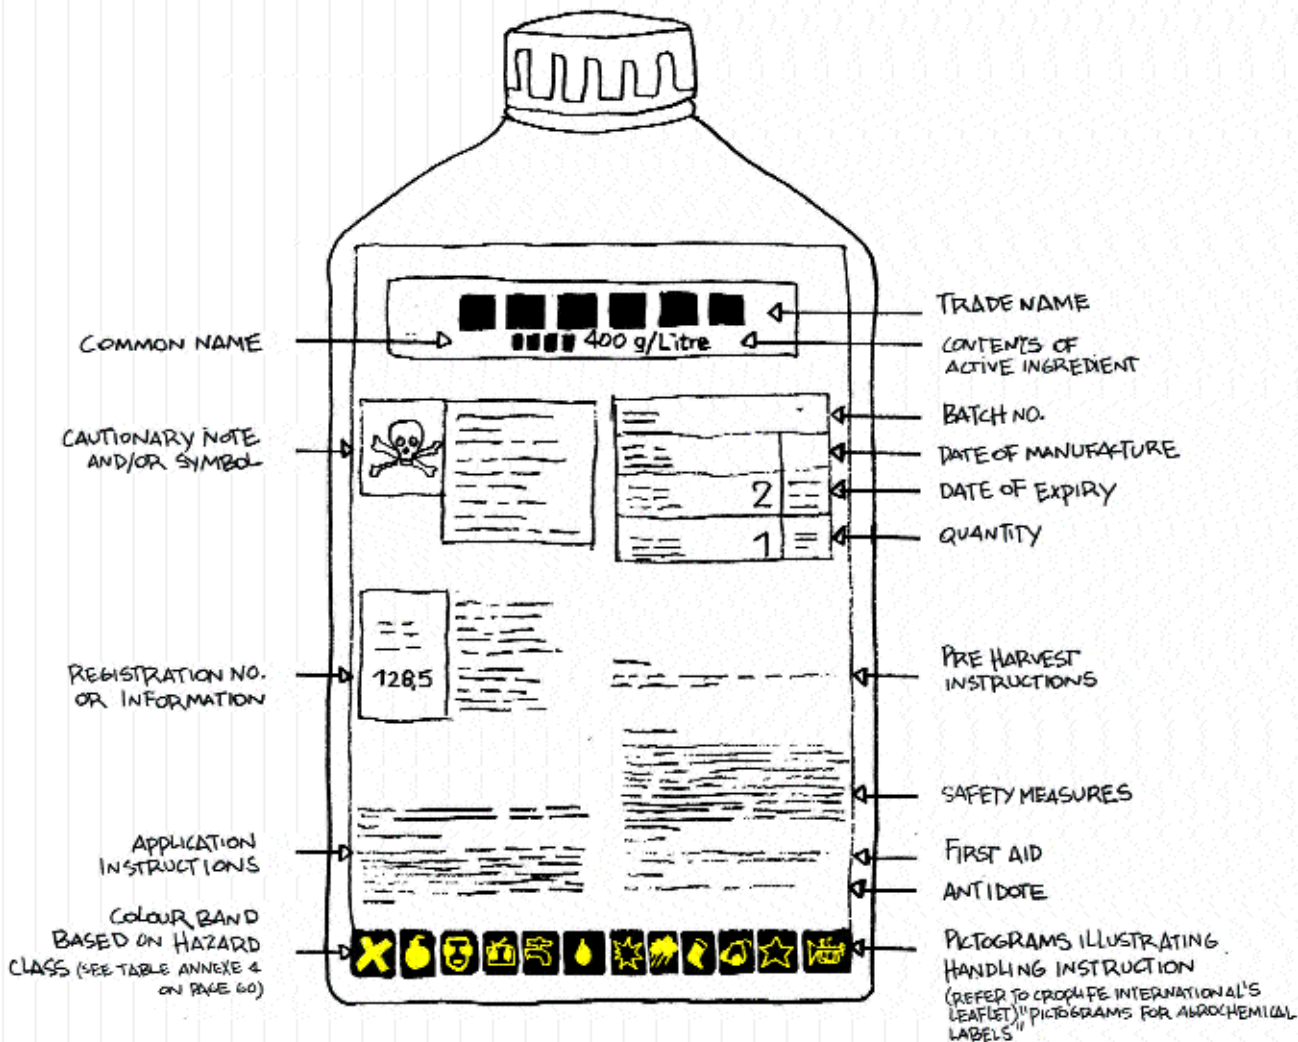 COMMON NAME
CAUTIONARY NOTE
AND/OR SYMBOL
REGISTRATION NO.
OR INFORMATION
APPLICATION
INSTRUCTIONS
COLOUR BAND
BASED ON HAZARD
CLASS (SEE TABLE ANNEXE 4
ON PAGE 60)
400 g/Litre
2
1
128,5
TRADE NAME
CONTENTS OF
ACTIVE INGREDIENT
BATCH NO.
DATE OF MANUFACTURE
DATE OF EXPIRY
QUANTITY
PRE HARVEST
INSTRUCTIONS
SAFETY MEASURES
FIRST AID
ANTIDOTE
PICTOGRAMS ILLUSTRATING
HANDLING INSTRUCTION
(REFER TO CROPLIFE INTERNATIONAL'S
LEAFLET) "PICTOGRAMS FOR AGROCHEMICAL
LABELS"